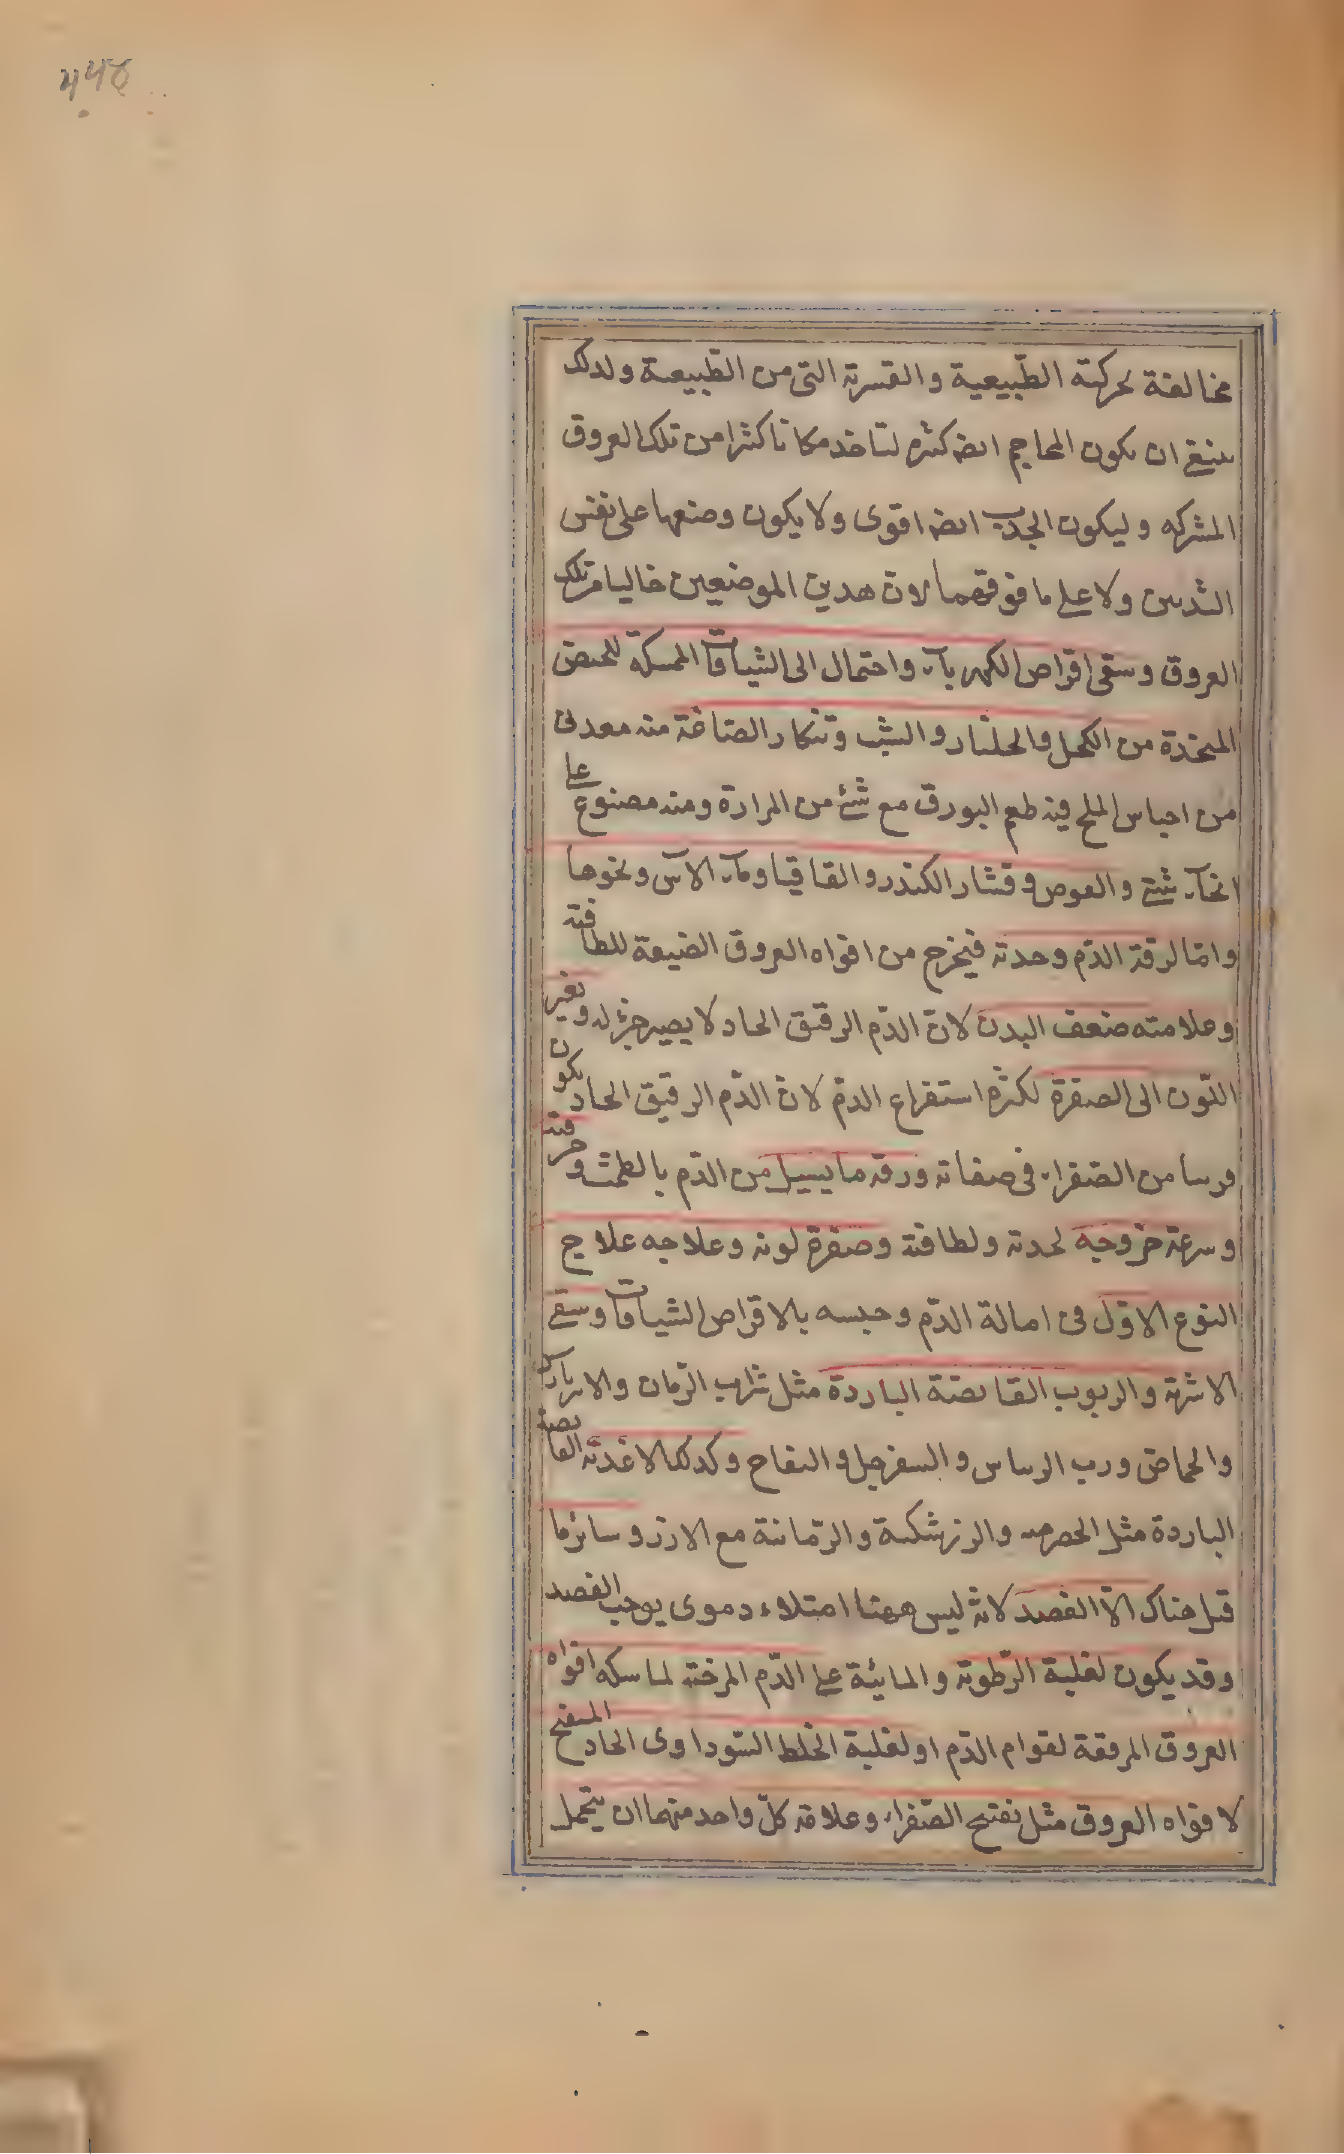 ۵۵۴
مخالفة لحركته الطّبيعية والقسرية التى من الطّبيعة ولدلك
ىىبغى ان ىكون المحاجم ايضه كثيره لتاخد مكانا كثيرا من تلك العروق
المشركه وليكون الجدب ايضه اقوى ولا يكون وضعها على نفس
الثدىىن ولا على ما فوقهما لان هدين الموضعين خاليا من تلك
العروق وسقى اقراص الكهرباء واحتمال الى الشيافات الممسكة للحيض
المتخدة من الكحل والجلنار والشب وتنكار الصناغة منه معدنى
من اجناس الملح فيه طعم البورق مع شئ من المرارة ومنه مصنوع على
انحاء شتى والعوص وقشار الكندر والقاقيا وماء الاس ونحوها
وامّا لرقة الدّم وحدته فيخرج من افواه العروق الضيعة للطافته
وعلامته ضعف البدن لانّ الدّم الرقيق الحاد لا يصير جزء له وتغير
اللّون الى الصفرة لكثرة استفراغ الدمّ لانّ الدّم الرقيق الحاد يكون
قرىبا من الصّفراء فى صفاته ورقه ما يسيل من الدّم بالطمث وحرقته
وسرعة خروجه لحدته ولطافته وصفرة لونه وعلاجه علاج
النوع الاوّل فى امالة الدّم وحبسه بالاقراص الشيافات وسقى
الاشربة والربوب القابضة الباردة مثل شراب الرّمان والانبرباريك
والحماض ورب الرىباس والسفرجل والتفاح وكدلك الاغدىة القابضة
الباردة مثل الحصرمىه والزرشكىة والرّمانىة مع الارز وسائر ما
قيل هناك الاّ الفصد لانه ليس ههنا امتلاء دموى يوجب الفصد
وقد يكون لغلبة الرّطوبة والمائيّة على الدّم المرخىه لماسكه افواه
العروق المرققة لقوام الدّم او لغلبة الخلط السّوداوى الحاد المفتح
لافواه العروق مثل تفتيح الصّفراء وعلامة كلّ واحد منهما ان يتحمل